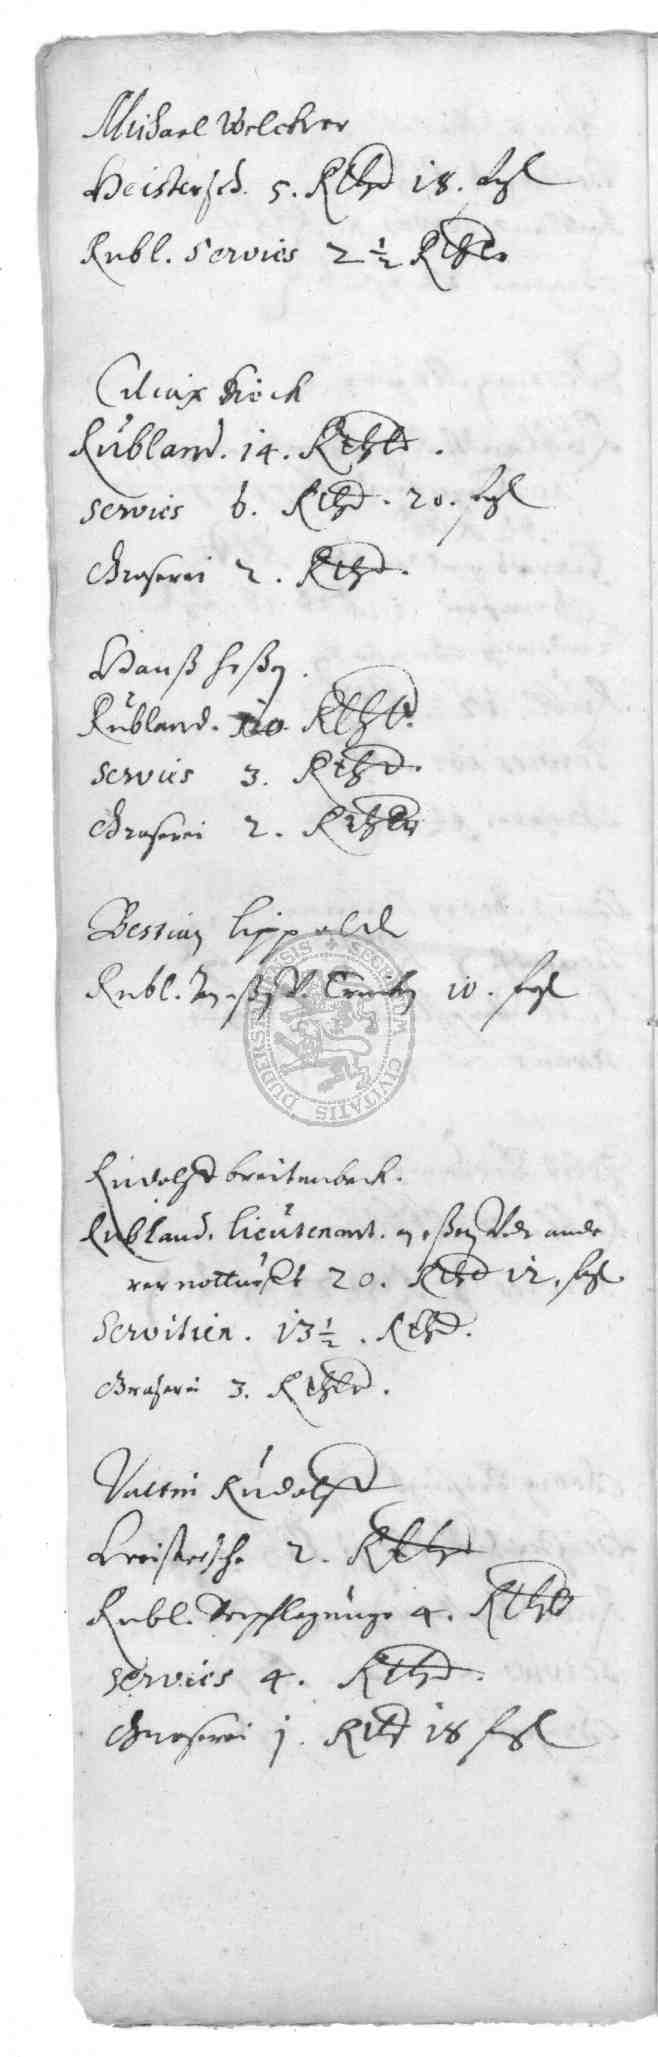 Michael Welcker
Heistersch. 5. Rthlr 18. sgl
Rubl. Servies 2 ½ Rthlr
Ciliax Kock
Rübland. 14. Rthlr.
servies 6. Rthlr. 20. sgl
Graserei 2. Rthlr.
Hanß heßen.
Rübland. Rthlr.
servies 3. Rthlr.
Graserei 2. Rthlr
Bestian Lippoldt
Rubl. 10. sgl
SIGILLUM CIVITATIS DUDERSTADENSIS
Rudolff breitenbach.
Rubland. lieutenant. eßen Vndt ande
rer notturfft 20. Rthlr 12. sgl.
Servitien. 13 ½. Rthlr.
Graserei 3. Rthlr.
Valtin Rudolff
Heistersch. 2. Rthlr
Rubl. Verpflegunge 4. Rthlr
servies 4. Rthlr.
Graserei 1. Rthlr 18 sgl